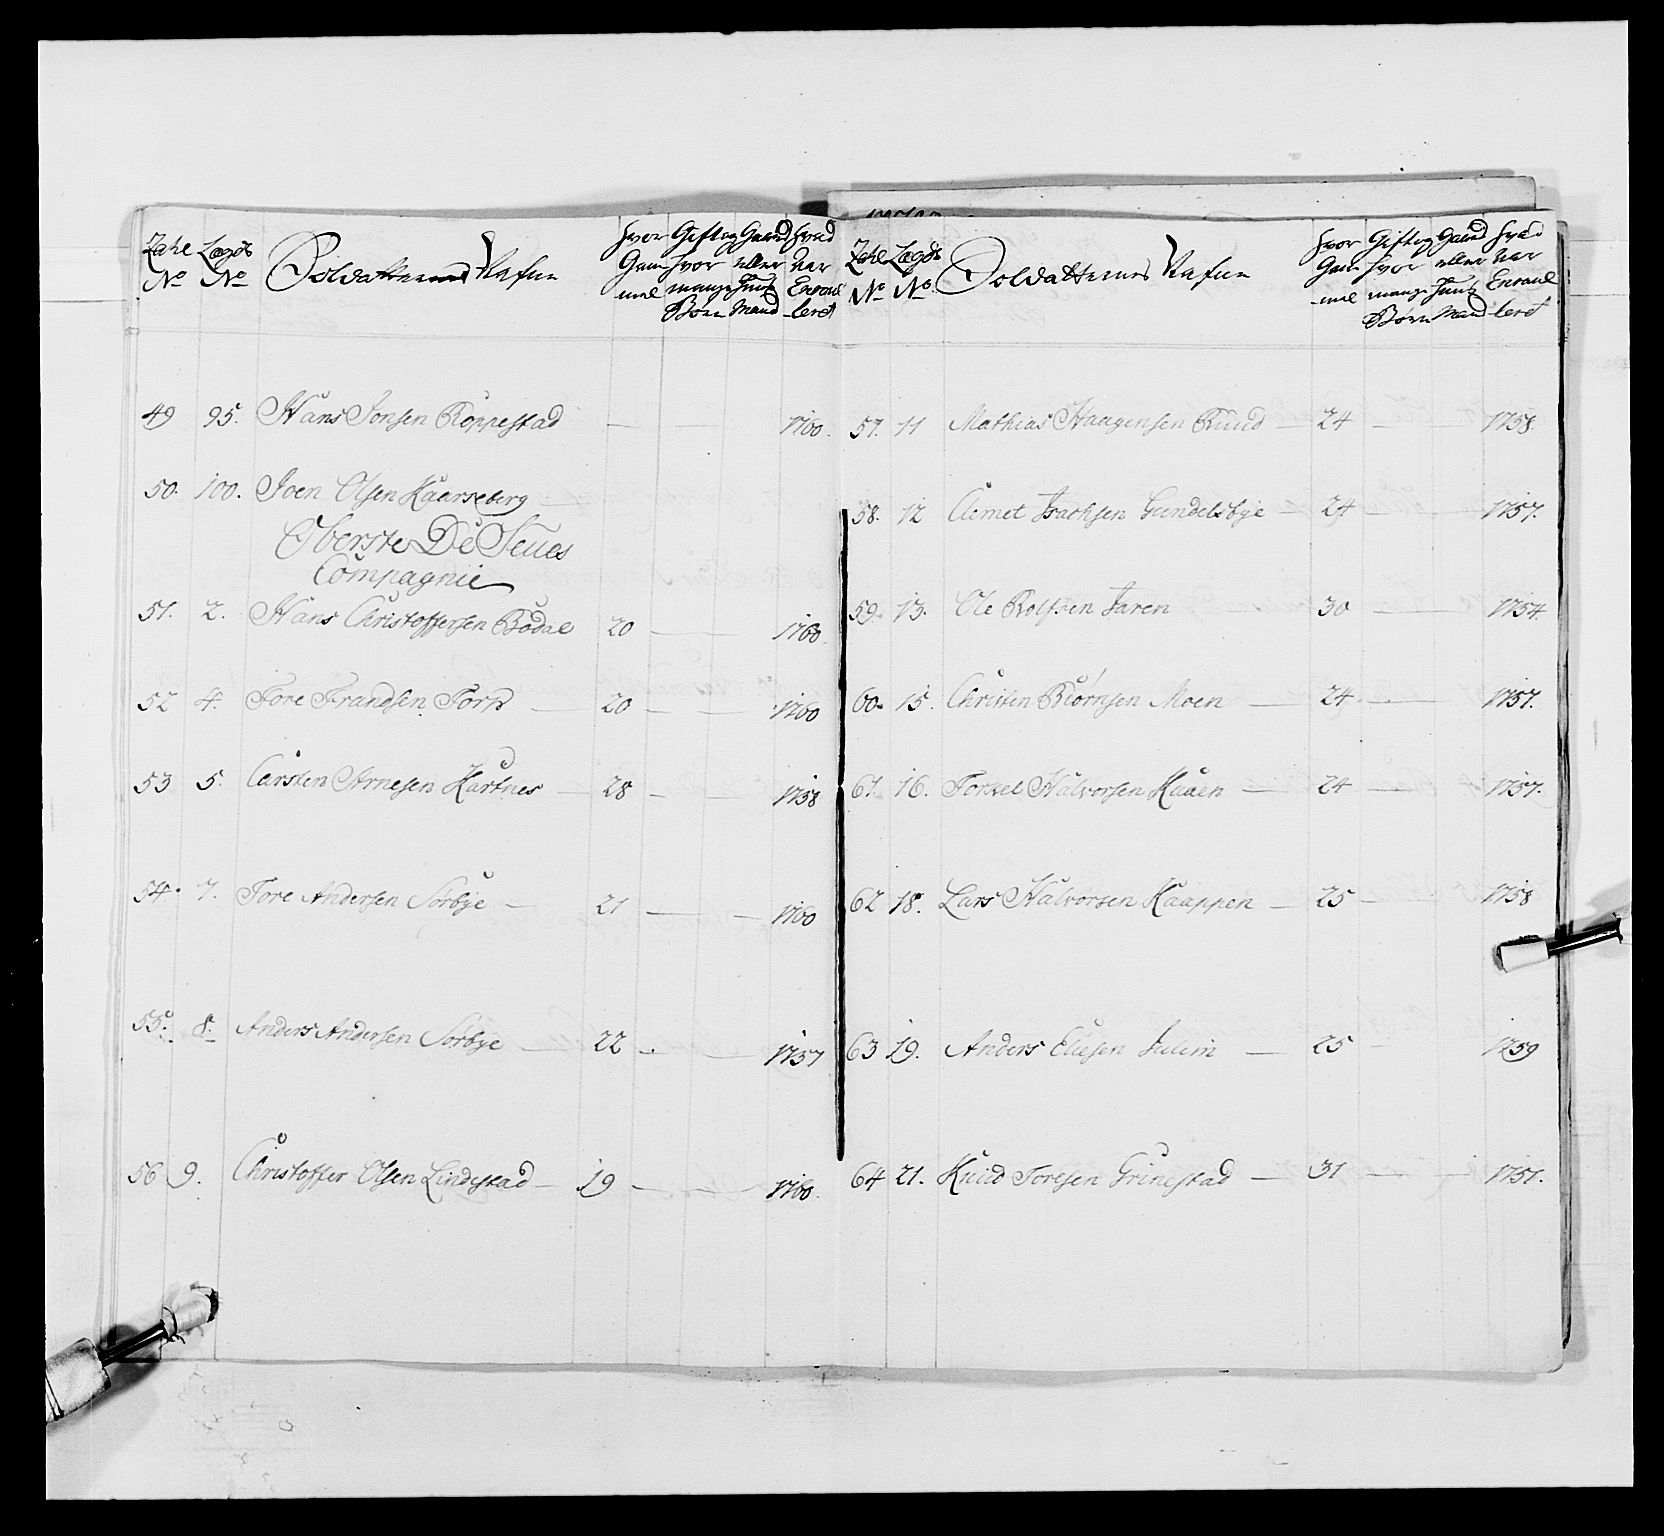 Zahl Lægds Soldatternes Nafne hvor Gift og Gaard hvad
No No Gam hvor eller Aar
mel mange Huus Enroul
Børn Mand leret
49 95. Hans Jonsen Roppestad — 1760.
50. 100. Joen Olsen Kaarseberg
Oberste De Seues
Compagnie
51. 2. Hans Christoffersen Bødal 20 — 1760.
52 4. Tore Frandsen Torp — 20 — 1760
53 5. Carsten Arnesen Kartnes — 28 — 1758
54. 7. Tore Andersen Sørbye — 21 — 1760
55. 8. Anders Andersen Sørbye — 22 — 1757
56 9. Christoffer Olsen Lindestad — 19 — 1760.
Zahl Lægds Soldatternes Nafne hvor Gift og Gaard hvad
No No Gam hvor eller Aar
mel mange Huus Enroul
Børn Mand leret
57. 11 Mathias Haagensen Ruud — 24 — 1758.
58. 12 Clemet Isachsen Gundelsbye — 24 — 1757.
59. 13. Ole Rolfsen Jaren 30 — 1754.
60. 15. Christen Biørnsen Moen — 24 — 1757.
61. 16. Torkel Halvorsen Kaaen — 24 — 1757.
62 18. Lars Halvorsen Kaappen — 25 — 1758
63 19. Anders Eliesen Julem — 25 — 1759
64 21. Knud Toresen Grinestad — 31 — 1751.